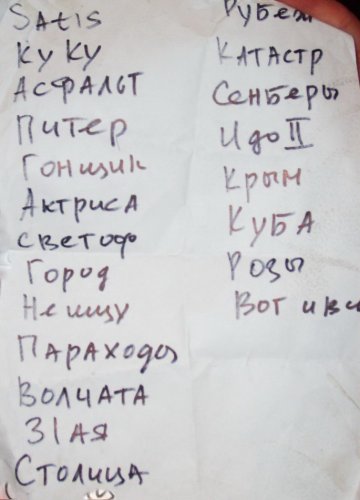 Satis
Ку Ку
Асфальт
Питер
Гонщик
Актриса
Светоф
Город
Не ищу
Параходы
Волчата
З1ая
Столица
Рубеж
Катастр
Сенберы
И до II
Крым
Куба
Розы
Вот и вс